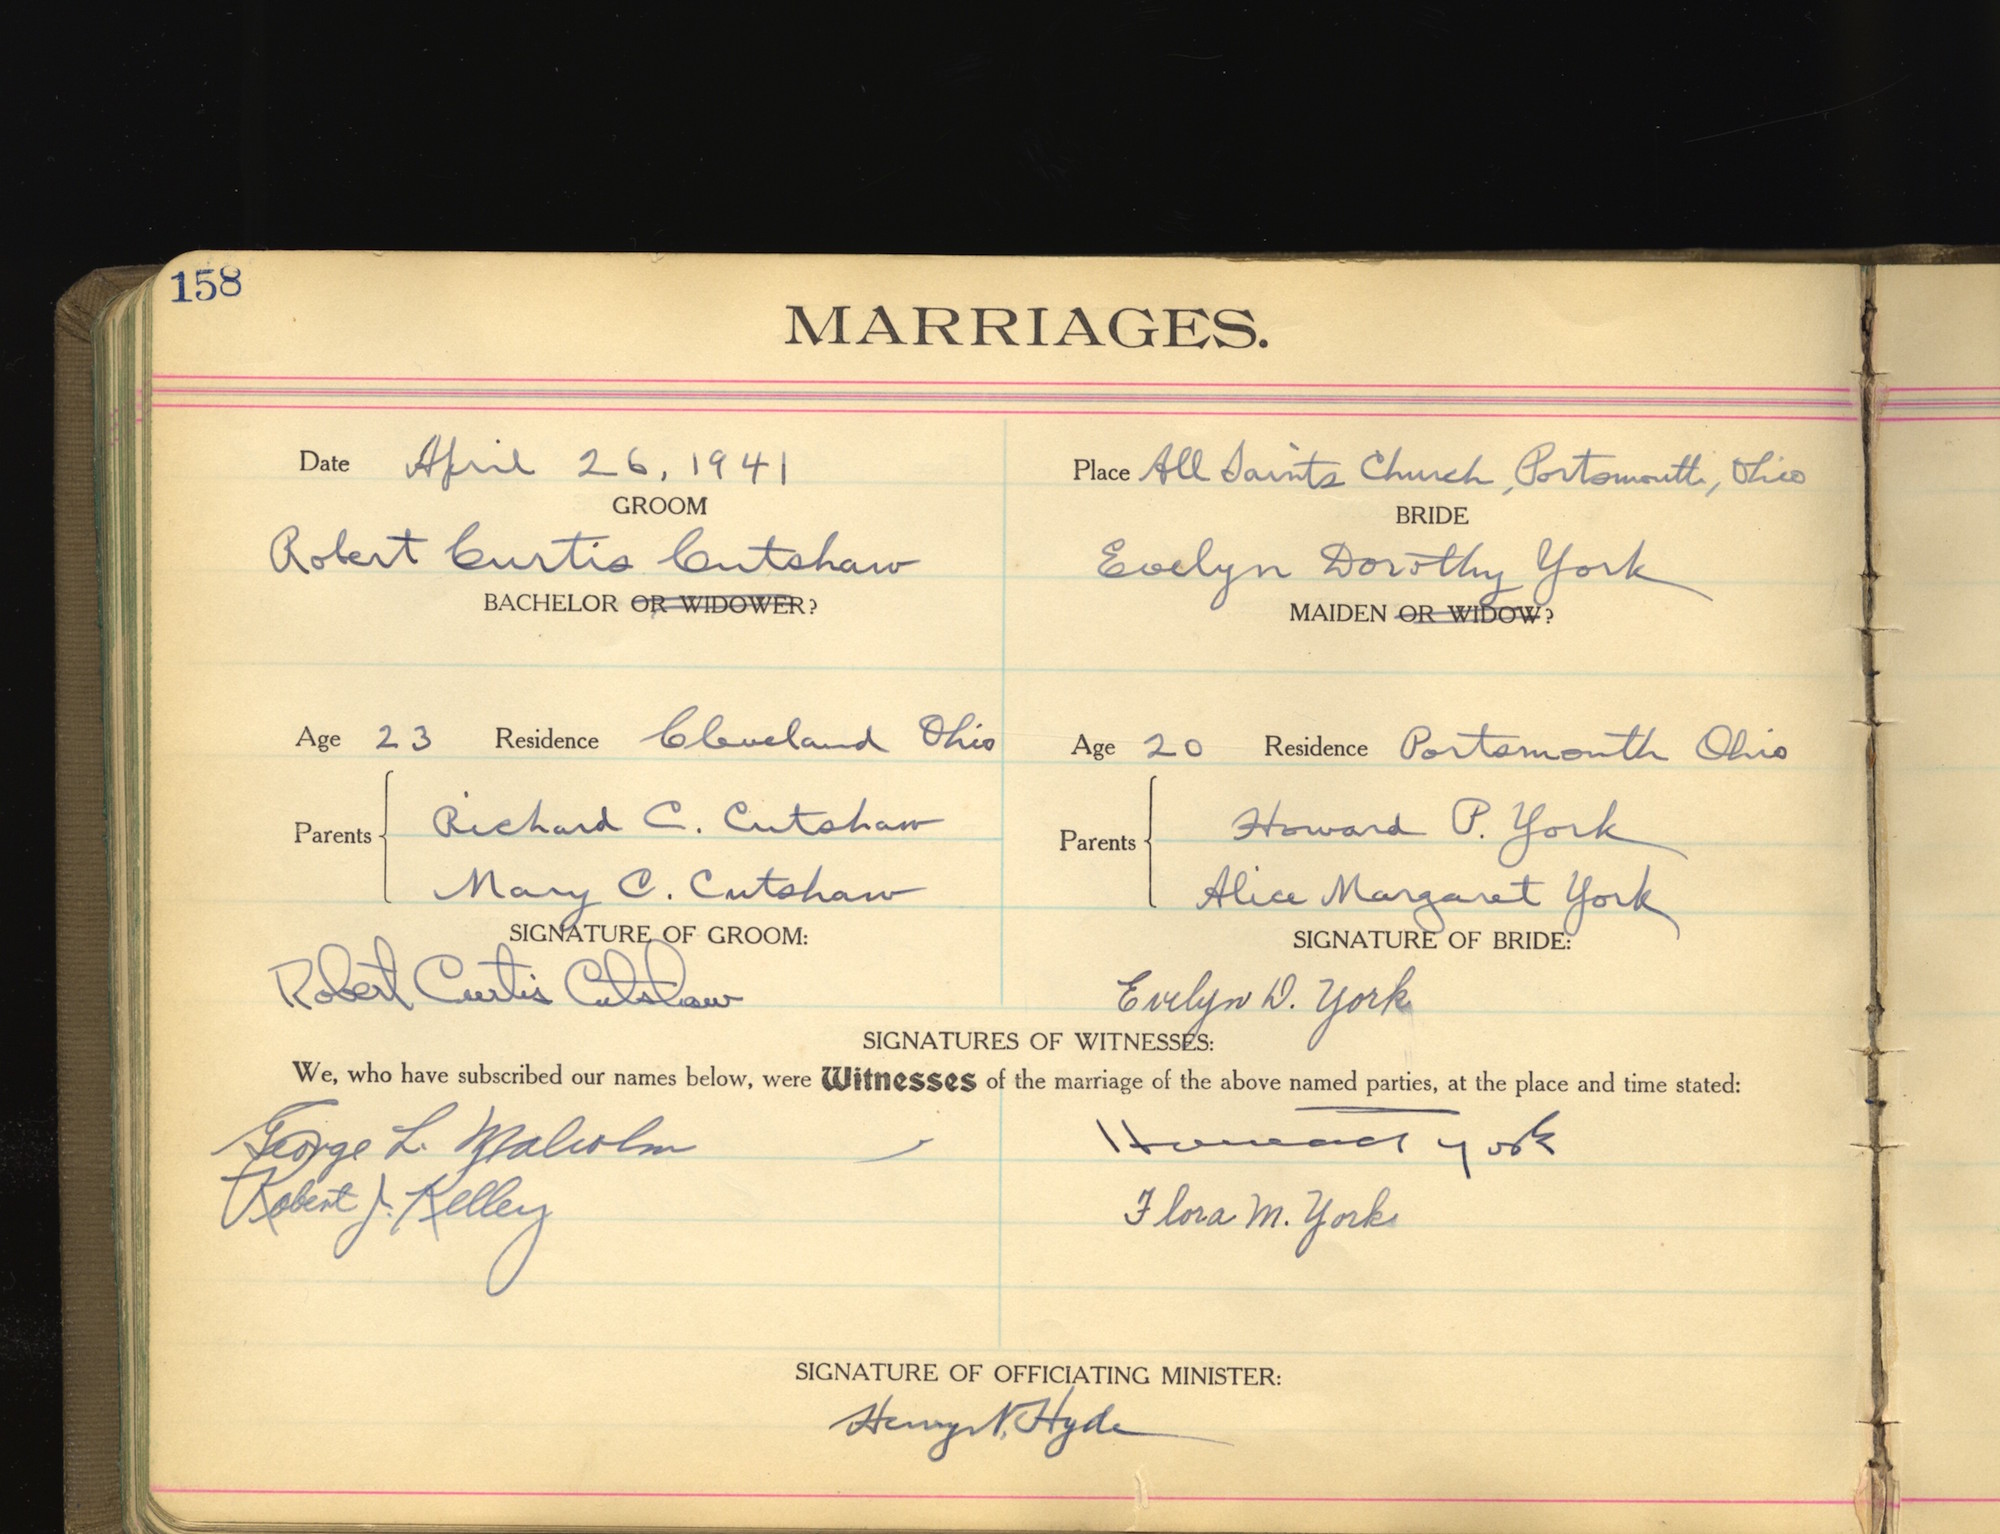 158
MARRIAGES.
Date April 26, 1941
Place All Saints Church, Portsmouth, Ohio
GROOM
BRIDE
Robert Curtis Cutshaw
Evelyn Dorothy York
BACHELOR OR WIDOWER?
MAIDEN OR WIDOW?
Age 23 Residence Cleveland Ohio
Age 20 Residence Portsmouth Ohio
Parents
Richard C. Cutshaw
Mary C. Cutshaw
Parents
Howard P. York
Alice Margaret York
SIGNATURE OF GROOM:
SIGNATURE OF BRIDE:
Robert Curtis Cutshaw
Evelyn D. York
SIGNATURES OF WITNESSES:
We, who have subscribed our names below, were Witnesses of the marriage of the above named parties, at the place and time stated:
George L. Malcolm
Howard York
Robert J. Kelley
Flora M. York
SIGNATURE OF OFFICIATING MINISTER:
Henry N. Hyde